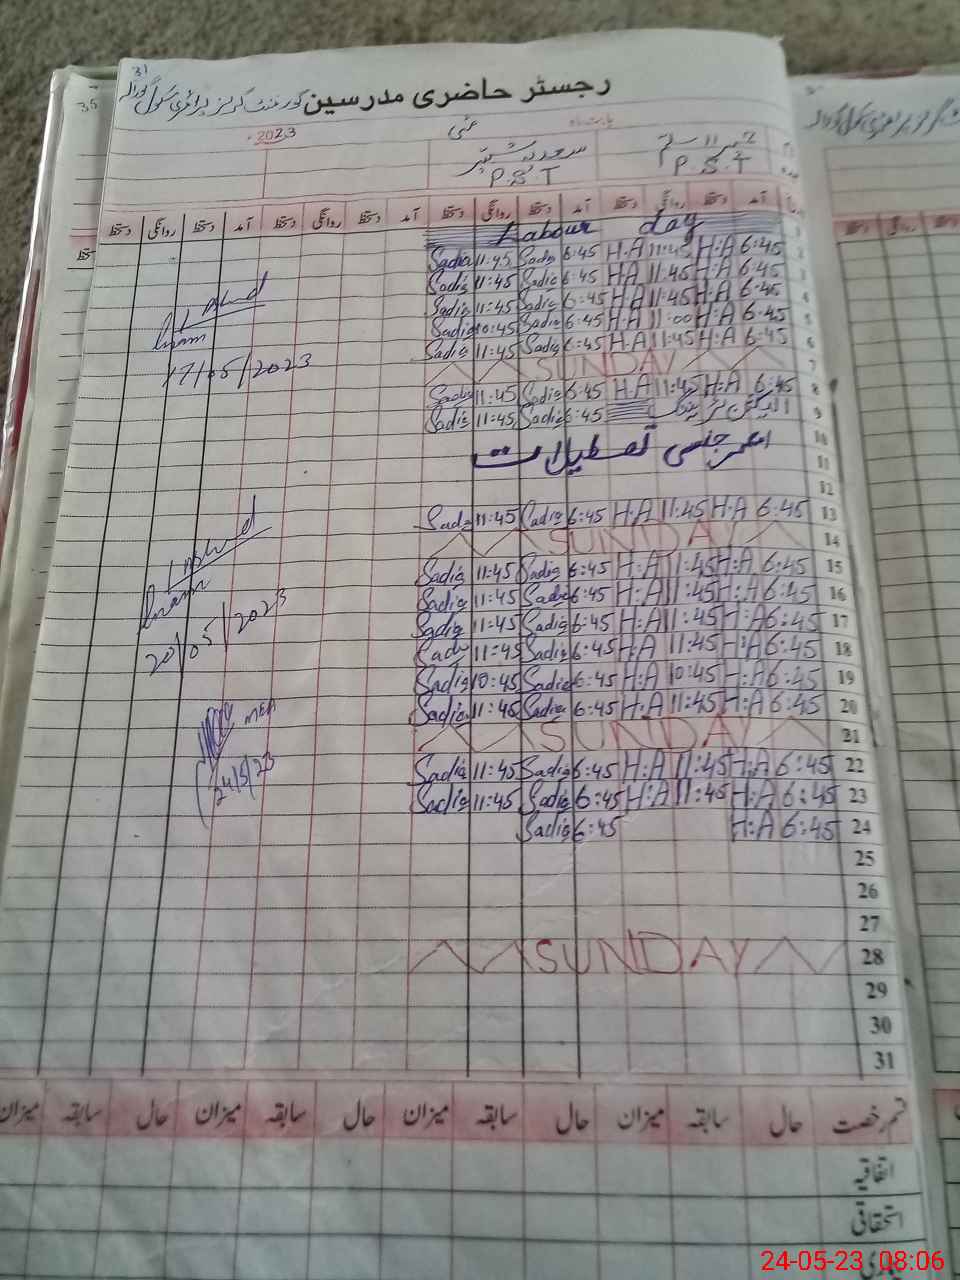 31
رجسٹر حاضری مدرسین گورنمنٹ گرلز پرائمری سکول
35
بابت ماہ مئی 2023
سعدیہ
P.S.T P.S.T
آمد دستخط روانگی دستخط آمد دستخط روانگی دستخط آمد دستخط روانگی دستخط آمد دستخط روانگی دستخط
1 Labour day
2 6:45 H.A 11:45 H.A 6:45 Sadia 11:45 Sadia
3 6:45 H.A 11:45 H.A 6:45 Sadia 11:45 Sadia
4 6:45 H.A 11:45 H.A 6:45 Sadia 11:45 Sadia
5 6:45 H.A 11:00 H.A 6:45 Sadia 10:45 Sadia
6 6:45 H.A 11:45 H.A 6:45 Sadia 11:45 Sadia
7 SUNDAY
8 6:45 H.A 11:45 H.A 6:45 Sadia 11:45 Sadia
9 الیکشن ٹریننگ 6:45 Sadia 11:45 Sadia
10 ایمرجنسی تعطیلات
11
12
13 6:45 H.A 11:45 H.A 6:45 Sadia 11:45 Sadia
14 SUNDAY
15 6:45 H.A 11:45 H.A 6:45 Sadia 11:45 Sadia
16 6:45 H.A 11:45 H.A 6:45 Sadia 11:45 Sadia
17 6:45 H.A 11:45 H.A 6:45 Sadia 11:45 Sadia
18 6:45 H.A 11:45 H.A 6:45 Sadia 11:45 Sadia
19 6:45 H:A 10:45 H:A 6:45 Sadia 10:45 Sadia
20 6:45 H:A 11:45 H:A 6:45 Sadia 11:45 Sadia
21 SUNDAY
22 6:45 H:A 11:45 H:A 6:45 Sadia 11:45 Sadia
23 6:45 H:A 11:45 H:A 6:45 Sadia 11:45 Sadia
24 6:45 H:A 6:45 Sadia
25
26
27
28 SUNDAY
29
30
31
17/05/2023
20/05/2023
MEA
24/5/23
قسم رخصت حال سابقہ میزان حال سابقہ میزان حال سابقہ میزان حال سابقہ میزان
اتفاقیہ
استحقاقی
24-05-23 08:06